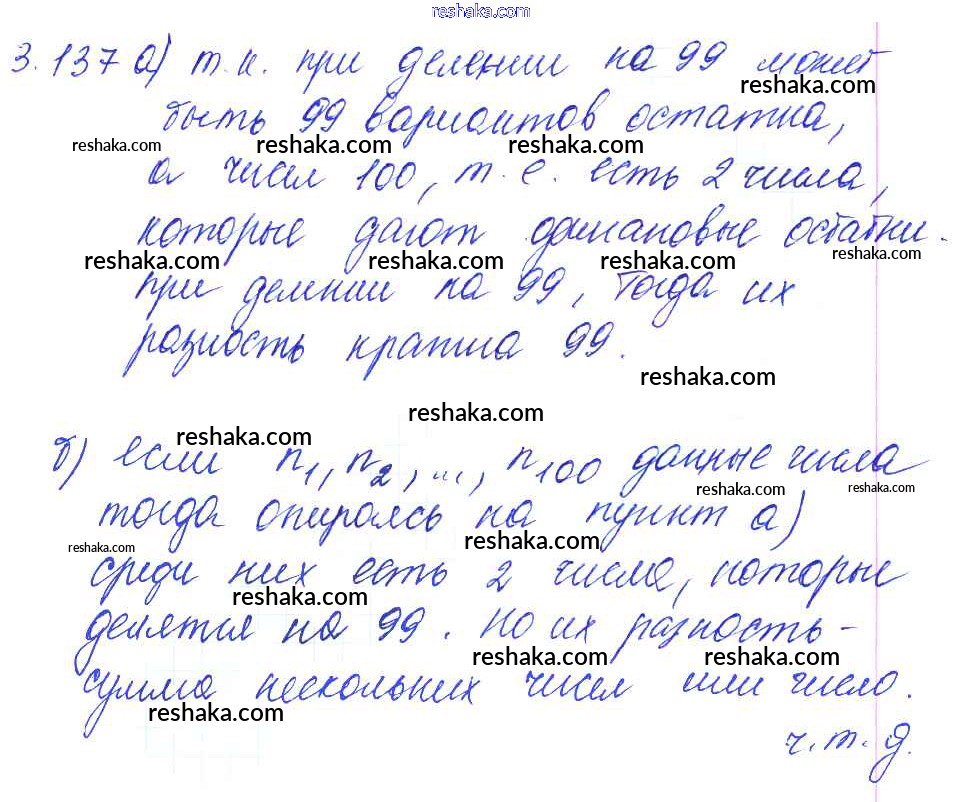 reshaka.com
3.137 а) т.к. при делении на 99 может
reshaka.com
быть 99 вариантов остатка,
reshaka.com reshaka.com reshaka.com
а чисел 100, т.е. есть 2 числа,
которые дают одинаковые остатки.
reshaka.com reshaka.com reshaka.com reshaka.com
при делении на 99, Тогда их
разность кратна 99.
reshaka.com
reshaka.com
reshaka.com
б) если n1, n2, ..., n100 данные числа
reshaka.com reshaka.com
тогда опираясь на пункт а)
reshaka.com reshaka.com
среди них есть 2 числа, которые
reshaka.com
делятся на 99. Но их разность -
reshaka.com reshaka.com
сумма нескольких чисел или число.
reshaka.com
ч.т.д.